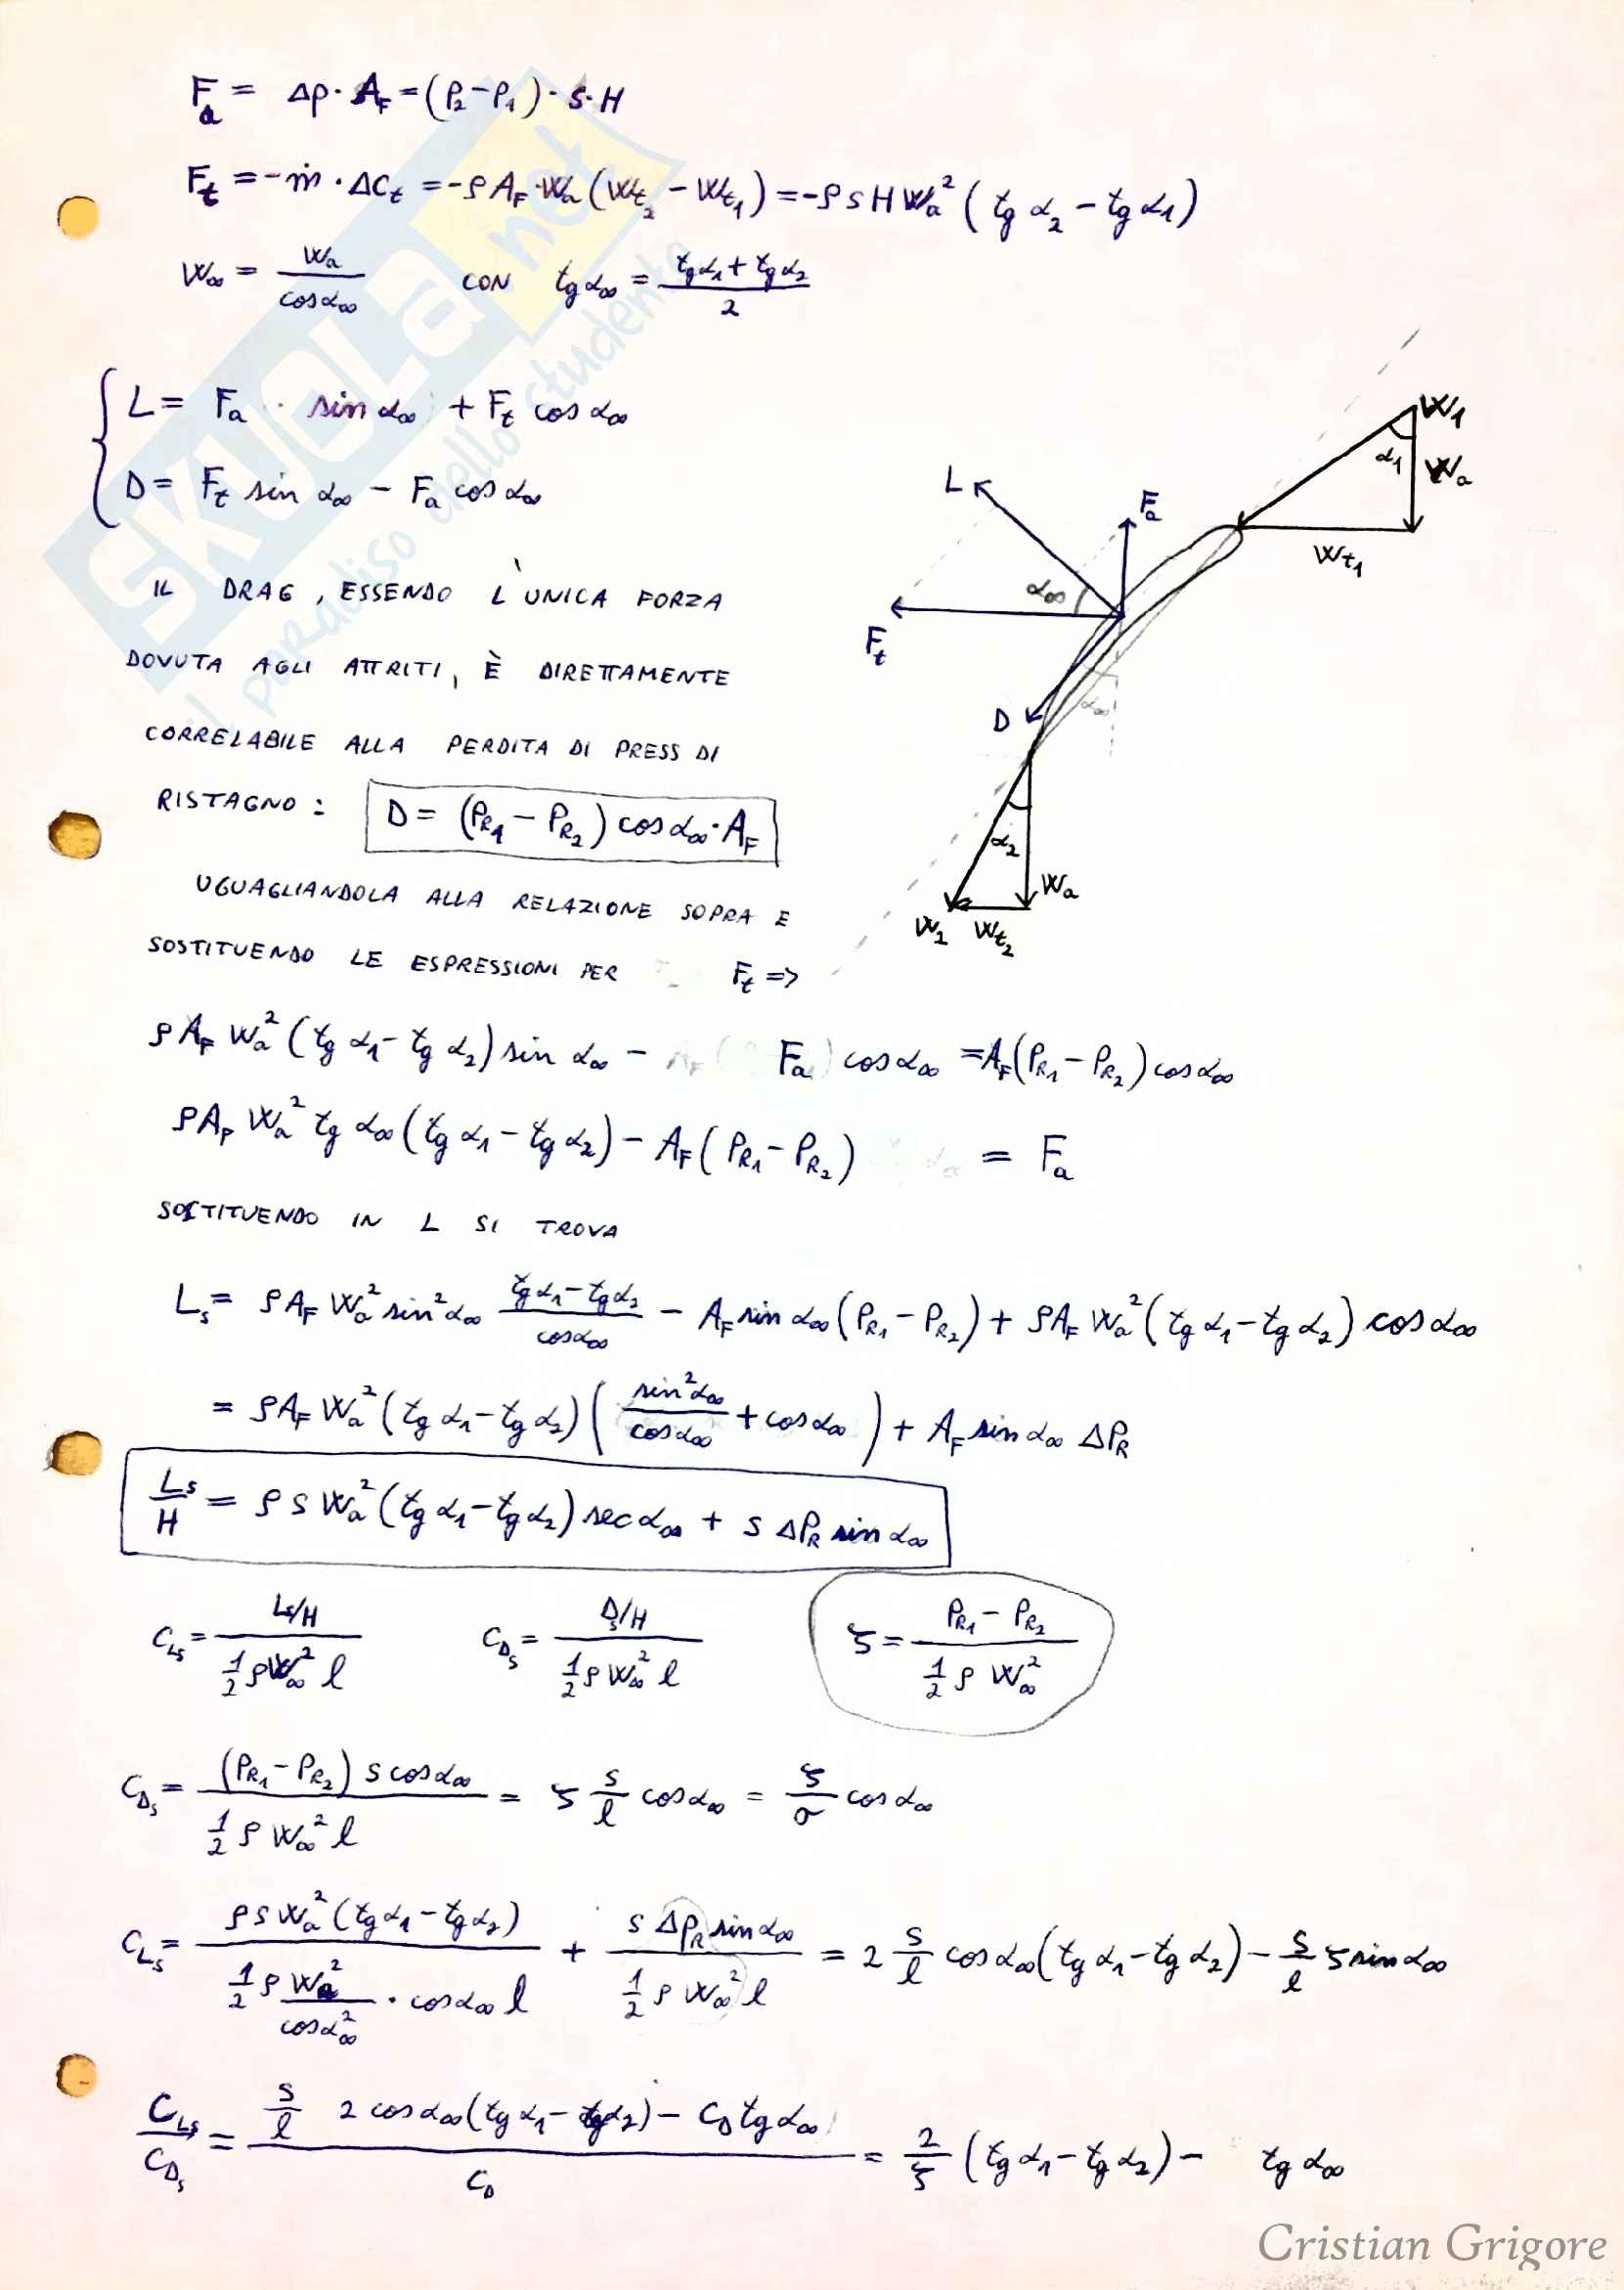 Fa = Δp · A_F = (P₂ - P₁) · s · H
F_t = - ṁ · ΔC_t = - ρ A_F · W_a (W_t₂ - W_t₁) = - ρ s H W_a² (tg α₂ - tg α₁)
W∞ = W_a / cos α∞ CON tg α∞ = (tg α₁ + tg α₂) / 2
L = F_a · sin α∞ + F_t cos α∞
D = F_t sin α∞ - F_a cos α∞
IL DRAG, ESSENDO L'UNICA FORZA
DOVUTA AGLI ATTRITI, È DIRETTAMENTE
CORRELABILE ALLA PERDITA DI PRESS DI
RISTAGNO : D = (P_R₁ - P_R₂) cos α∞ · A_F
UGUAGLIANDOLA ALLA RELAZIONE SOPRA E
SOSTITUENDO LE ESPRESSIONI PER F_t =>
W₁
α₁
W_a
W_t₁
L
F_a
α∞
F_t
D
α∞
α₂
W_a
W₂
W_t₂
ρ A_F W_a² (tg α₁ - tg α₂) sin α∞ - F_a cos α∞ = A_F (P_R₁ - P_R₂) cos α∞
ρ A_F W_a² tg α∞ (tg α₁ - tg α₂) - A_F (P_R₁ - P_R₂) = F_a
SOSTITUENDO IN L SI TROVA
L_s = ρ A_F W_a² sin² α∞ (tg α₁ - tg α₂) / cos α∞ - A_F sin α∞ (P_R₁ - P_R₂) + ρ A_F W_a² (tg α₁ - tg α₂) cos α∞
= ρ A_F W_a² (tg α₁ - tg α₂) (sin² α∞ / cos α∞ + cos α∞) + A_F sin α∞ ΔP_R
L_s / H = ρ s W_a² (tg α₁ - tg α₂) sec α∞ + s ΔP_R sin α∞
C_Ls = (L_s/H) / (½ ρ W∞² l) C_Ds = (D_s/H) / (½ ρ W∞² l) ζ = (P_R₁ - P_R₂) / (½ ρ W∞²)
C_Ds = (P_R₁ - P_R₂) s cos α∞ / (½ ρ W∞² l) = ζ s/l cos α∞ = ζ/σ cos α∞
C_Ls = ρ s W_a² (tg α₁ - tg α₂) / (½ ρ W_a² / cos α∞² · cos α∞ l) + s Δp_R sin α∞ / (½ ρ W∞² l) = 2 s/l cos α∞ (tg α₁ - tg α₂) - s/l ζ sin α∞
C_Ls / C_Ds = (s/l 2 cos α∞ (tg α₁ - tg α₂) - C_D tg α∞) / C_D = 2/ζ (tg α₁ - tg α₂) - tg α∞
SKUOLA.net
il paradiso dello studente
Cristian Grigore